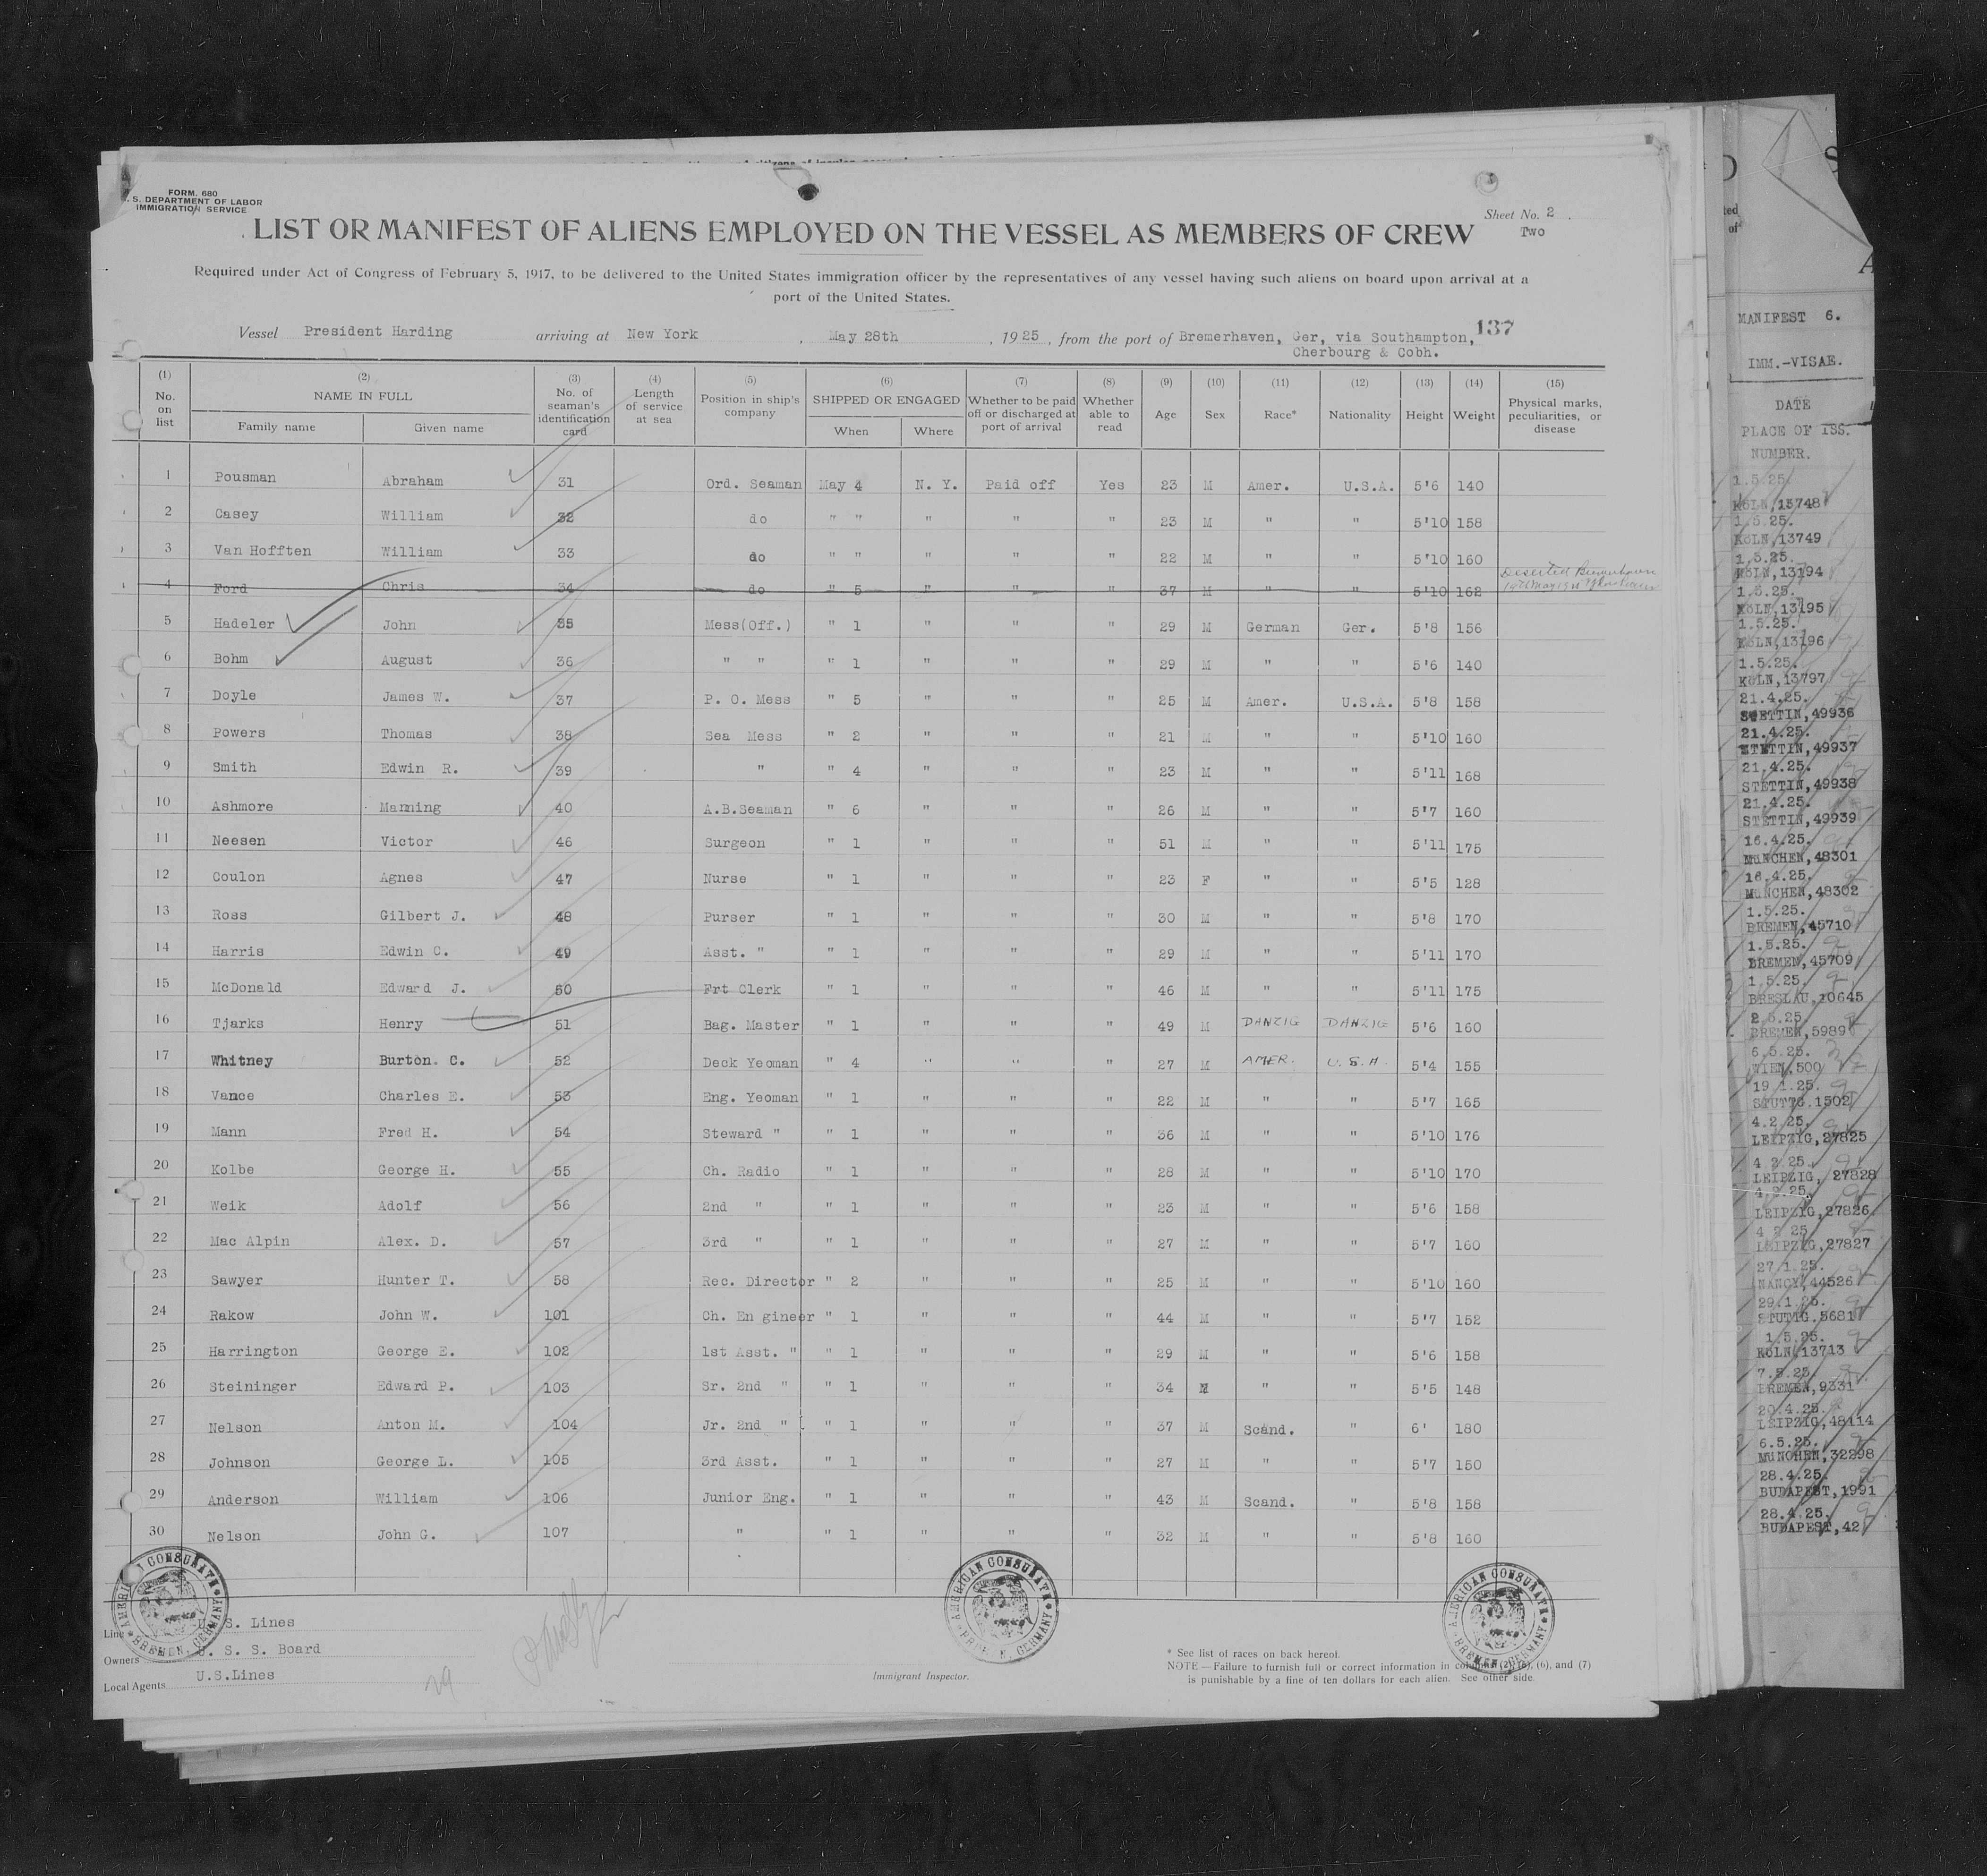 FORM. 680
S. DEPARTMENT OF LABOR
IMMIGRATION SERVICE
Sheet No. 2
Two
LIST OR MANIFEST OF ALIENS EMPLOYED ON THE VESSEL AS MEMBERS OF CREW
Required under Act of Congress of February 5, 1917, to be delivered to the United States immigration officer by the representatives of any vessel having such aliens on board upon arrival at a
port of the United States.
Vessel President Harding arriving at New York , May 28th , 1925 , from the port of Bremerhaven, Ger, via Southampton, 137
Cherbourg & Cobh.
(1) No. on list (2) NAME IN FULL Family name Given name (3) No. of seaman's identification card (4) Length of service at sea (5) Position in ship's company (6) SHIPPED OR ENGAGED When Where (7) Whether to be paid off or discharged at port of arrival (8) Whether able to read (9) Age (10) Sex (11) Race* (12) Nationality (13) Height (14) Weight (15) Physical marks, peculiarities, or disease
1 Pousman Abraham 31 Ord. Seaman May 4 N. Y. Paid off Yes 23 M Amer. U.S.A. 5'6 140
2 Casey William 32 do " " " " " 23 M " " 5'10 158
3 Van Hofften William 33 do " " " " " 22 M " " 5'10 160
4 Ford Chris 34 do " 5 " " " 37 M " " 5'10 162 Deserted
5 Hadeler John 35 Mess(Off.) " 1 " " " 29 M German Ger. 5'8 156
6 Bohm August 36 " " " 1 " " " 29 M " " 5'6 140
7 Doyle James W. 37 P. O. Mess " 5 " " " 25 M Amer. U.S.A. 5'8 158
8 Powers Thomas 38 Sea Mess " 2 " " " 21 M " " 5'10 160
9 Smith Edwin R. 39 " " 4 " " " 23 M " " 5'11 168
10 Ashmore Manning 40 A.B.Seaman " 6 " " " 26 M " " 5'7 160
11 Neesen Victor 46 Surgeon " 1 " " " 51 M " " 5'11 175
12 Coulon Agnes 47 Nurse " 1 " " " 23 F " " 5'5 128
13 Ross Gilbert J. 48 Purser " 1 " " " 30 M " " 5'8 170
14 Harris Edwin C. 49 Asst. " " 1 " " " 29 M " " 5'11 170
15 McDonald Edward J. 50 Frt Clerk " 1 " " " 46 M " " 5'11 175
16 Tjarks Henry 51 Bag. Master " 1 " " " 49 M DANZIG DANZIG 5'6 160
17 Whitney Burton. C. 52 Deck Yeoman " 4 " " " 27 M AMER. U.S.A. 5'4 155
18 Vance Charles E. 53 Eng. Yeoman " 1 " " " 22 M " " 5'7 165
19 Mann Fred H. 54 Steward " " 1 " " " 36 M " " 5'10 176
20 Kolbe George H. 55 Ch. Radio " 1 " " " 28 M " " 5'10 170
21 Weik Adolf 56 2nd " " 1 " " " 23 M " " 5'6 158
22 Mac Alpin Alex. D. 57 3rd " " 1 " " " 27 M " " 5'7 160
23 Sawyer Hunter T. 58 Rec. Director " 2 " " " 25 M " " 5'10 160
24 Rakow John W. 101 Ch. En gineer " 1 " " " 44 M " " 5'7 152
25 Harrington George E. 102 1st Asst. " " 1 " " " 29 M " " 5'6 158
26 Steininger Edward P. 103 Sr. 2nd " " 1 " " " 34 M " " 5'5 148
27 Nelson Anton M. 104 Jr. 2nd " " 1 " " " 37 M Scand. " 6' 180
28 Johnson George L. 105 3rd Asst. " 1 " " " 27 M " " 5'7 150
29 Anderson William 106 Junior Eng. " 1 " " " 43 M Scand. " 5'8 158
30 Nelson John G. 107 " " 1 " " " 32 M " " 5'8 160
Line U. S. Lines
Owners U. S. S. Board
Local Agents U.S.Lines
29
AMERICAN CONSULATE BREMEN, GERMANY
AMERICAN CONSULATE BREMEN, GERMANY
AMERICAN CONSULATE BREMEN, GERMANY
Immigrant Inspector.
* See list of races on back hereof.
NOTE—Failure to furnish full or correct information in columns (2), (5), (6), and (7)
is punishable by a fine of ten dollars for each alien. See other side.
MANIFEST 6.
IMM.-VISAE.
DATE
PLACE OF ISS.
NUMBER.
1.5.25.
KÖLN,13748
1.5.25.
KÖLN,13749
1.5.25.
KÖLN,13194
1.5.25.
KÖLN,13195
1.5.25.
KÖLN,13196
1.5.25.
KÖLN,13797
21.4.25.
STETTIN,49936
21.4.25.
STETTIN,49937
21.4.25.
STETTIN,49938
21.4.25.
STETTIN,49939
16.4.25.
MüNCHEN,48301
16.4.25.
MüNCHEN,48302
1.5.25.
BREMEN,45710
1.5.25.
BREMEN,45709
1.5.25
BRESLAU,10645
2.5.25.
BREMEN,5989
6.5.25.
WIEN,500
19.1.25.
STUTTG.1502
4.2.25.
LEIPZIG,27825
4.2.25.
LEIPZIG, 27828
4.2.25.
LEIPZIG,27826
4.2.25
LEIPZIG,27827
27.1.25.
NANCY,44526
29.1.25.
STUTTG.5681
1.5.25.
KÖLN,13713
7.5.25.
BREMEN,9331
20.4.25.
LEIPZIG,48114
6.5.25.
MüNCHEN,32298
28.4.25.
BUDAPEST,1991
28.4.25.
BUDAPEST,42